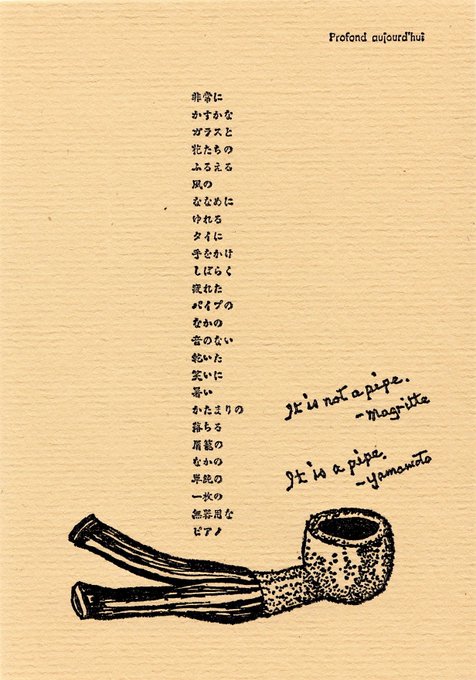 Profond aujourd'hui
非常に
かすかな
ガラスと
花たちの
ふるえる
風の
ななめに
ゆれる
タイに
手をかけ
しばらく
疲れた
パイプの
なかの
音のない
乾いた
笑いに
暑い
かたまりの
落ちる
屑籠の
なかの
一枚の
無器用な
ピアノ
It is not a pipe.
-Magritte
It is a pipe.
-Yamamoto